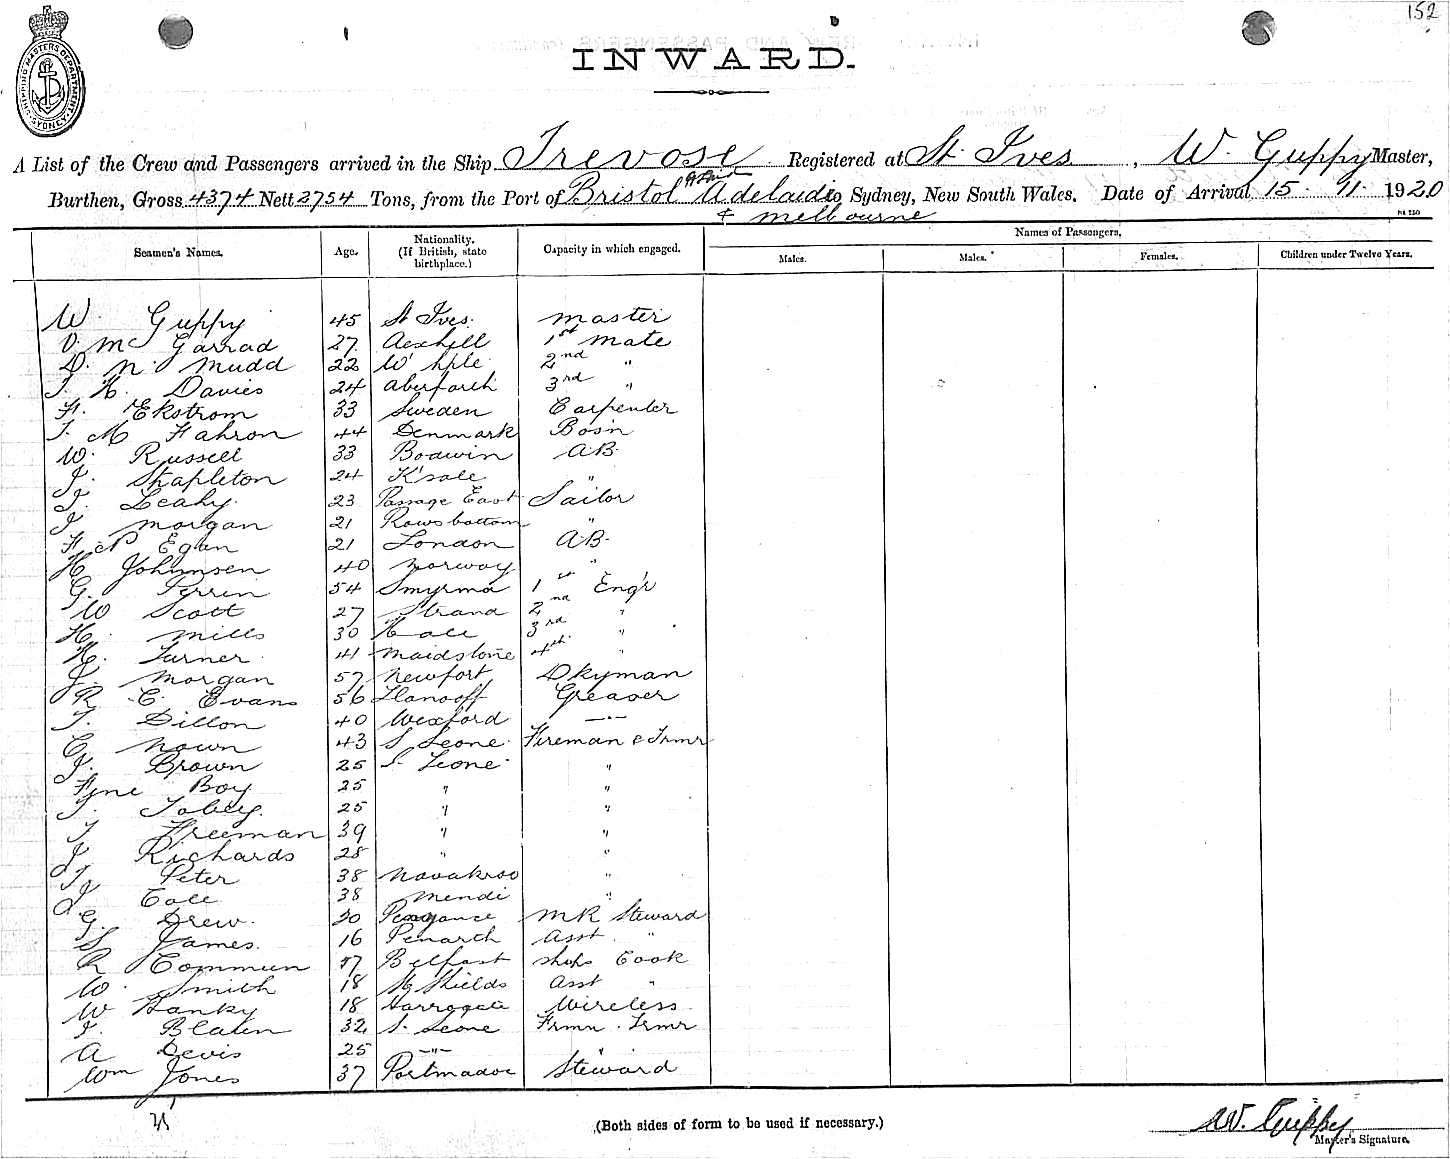 152
SHIPPING MASTERS DEPARTMENT
SYDNEY
INWARD.
A List of the Crew and Passengers arrived in the Ship Trevose Registered at St. Ives, W. Guppy Master,
Burthen, Gross 4374 Nett 2754 Tons, from the Port of Bristol Adelaide to Sydney, New South Wales. Date of Arrival 15 . 11 . 1920
& Melbourne
Seamen's Names. Age. Nationality. (If British, state birthplace.) Capacity in which engaged. Names of Passengers.
Males. Males. Females. Children under Twelve Years.
W. Guppy 45 St Ives. Master
Garrad 27 1st Mate
D. N. Mudd 22 2nd "
Davies 24 3rd "
F. Ekstrom 33 Sweden Carpenter
M Fahron 44 Denmark Bos'n
W. Russell 33 Bodwin AB.
J. Stapleton 24 K'sale "
J. Leahy. 23 Passage East Sailor
J Morgan 21 Rowsbottom "
F P Egan 21 London AB.
H Johnnsen 40 Norway "
G. Perrin 54 Smyrna 1st Eng'r
W Scott 27 Strand 2nd "
H. Mills 30 3rd "
H. Turner. 41 Maidstone 4th "
J. Morgan 57 Newport Dkyman
R. C. Evans 56 Greaser
T. Dillon 40 Wexford —"—
C. Nown 43 S Leone. Fireman & Trmr
J. Brown 25 S. Leone. "
Fine Boy 25 " "
T. Tobey. 25 " "
T Freeman 39 " "
J Richards 28 " "
J. Peter 38 "
J Cole 38 Mendi "
G. Drew. Penzance MR Steward
S James. 16 Penarth Asst. "
R Belfast Ships Cook
W. Smith 18 Shields Asst "
W Hanky 18 Harrogate Wireless.
J. 32 S. Leone Frmn. Trmr
A Devis 25 —"— "
Wm Jones 37 Portmadoc Steward
(Both sides of form to be used if necessary.)
W. Guppy
Master's Signature.